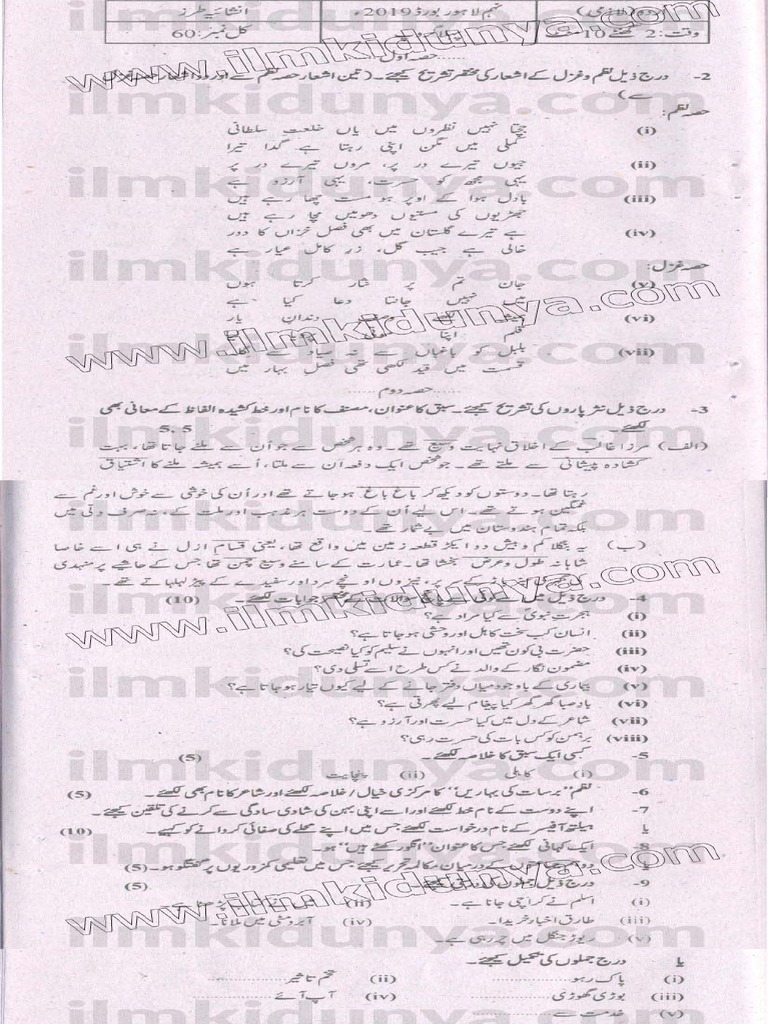 اردو (لازمی) نہم لاہور بورڈ 2019ء انشائیہ طرز
وقت: 2 گھنٹے 10 منٹ کل نمبر: 60
حصہ اول
2- درج ذیل نظم و غزل کے اشعار کی مختصر تشریح کیجئے۔ (تین اشعار حصہ نظم سے اور دو اشعار حصہ غزل
سے)
حصہ نظم:
(i) جچتا نہیں نظروں میں یاں خلعت سلطانی
کملی میں مگن اپنی رہتا ہے گدا تیرا
(ii) جیوں تیرے در پر، مروں تیرے در پر
یہی مجھ کو حسرت، یہی آرزو ہے
(iii) بادل ہوا کے اوپر ہو مست چھا رہے ہیں
جھڑیوں کی مستیوں دھومیں مچا رہے ہیں
(iv) ہے تیرے گلستان میں بھی فصل خزاں کا دور
خالی ہے جیب گل، زر کامل عیار ہے
حصہ غزل:
(v) جان تم پر نثار کرتا ہوں
میں نہیں جانتا دعا کیا ہے
(vi) دندان یار
قلم اپنا
(vii) بلبل کو باغباں سے نہ صیاد سے گلہ
قسمت میں قید لکھی تھی فصل بہار میں
حصہ دوم
3- درج ذیل نثر پاروں کی تشریح کیجئے۔ سبق کا عنوان، مصنف کا نام اور خط کشیدہ الفاظ کے معانی بھی
لکھئے۔ 5، 5
(الف) مرزا غالب کے اخلاق نہایت وسیع تھے۔ وہ ہر شخص سے جو اُن سے ملنے جاتا تھا، بہت
کشادہ پیشانی سے ملتے تھے۔ جو شخص ایک دفعہ ان سے ملتا، اُسے ہمیشہ ملنے کا اشتیاق
رہتا تھا۔ دوستوں کو دیکھ کر باغ باغ ہو جاتے تھے اور اُن کی خوشی سے خوش اور غم سے
غمگین ہوتے تھے۔ اس لیے اُن کے دوست ہر مذہب اور ملت کے، نہ صرف دلی میں
بلکہ تمام ہندوستان میں بے شمار تھے
(ب) یہ بنگلا کم و بیش دو ایکڑ قطعہ زمین میں واقع تھا، یعنی قسام ازل نے ہی اسے خاصا
شاہانہ طول و عرض بخشا تھا۔ عمارت کے سامنے وسیع چمن تھا جس کے حاشیے پر منہدی
پر، تیزوں اونچے سرو اور سفیدے کے پیڑ لہلہاتے تھے۔
4- درج ذیل میں سے کوئی سے سوالات کے مختصر جوابات لکھئے۔ (10)
(i) ہجرت نبوی سے کیا مراد ہے؟
(ii) انسان کب سخت کاہل اور وحشی ہو جاتا ہے؟
(iii) حضرت بی کون تھیں اور انہوں نے سلیم کو کیا نصیحت کی؟
(iv) مضمون نگار کے والد نے کس طرح اسے تسلی دی؟
(v) بیماری کے باوجود میاں دفتر جانے کے لیے کیوں تیار ہو جاتا ہے؟
(vi) باد صبا گھر گھر کیا پیغام لیے پھرتی ہے؟
(vii) شاعر کے دل میں کیا حسرت اور آرزو ہے؟
(viii) برہمن کو کس بات کی حسرت رہی؟
5- کسی ایک سبق کا خلاصہ لکھئے۔ (5)
(i) کاہلی (ii) پنچایت
6- نظم "برسات کی بہاریں" کا مرکزی خیال / خلاصہ لکھئے اور شاعر کا نام بھی لکھئے۔ (5)
7- اپنے دوست کے نام خط لکھئے اور اسے اپنی بہن کی شادی سادگی سے کرنے کی تلقین کیجئے۔
یا ہیلتھ آفیسر کے نام درخواست لکھئے جس میں اپنے محلے کی صفائی کروانے کو کہیے۔ (10)
8- ایک کہانی لکھئے جس کا عنوان "انگور کھٹے ہیں" ہو۔
کے درمیان مکالمہ تحریر کیجئے جس میں تعلیمی کمزوریوں پر گفتگو ہو۔ (5)
9- درج ذیل جملوں کی (5)
(i) اسلم نے کراچی جانا ہے۔ (ii)
(iii) طارق اخبار خریدا۔ (iv) آبرو مٹی میں ملانا۔
(v) ریوڑ جنگل میں چر رہی ہے۔
یا درج جملوں کی تکمیل کیجئے۔
(i) پاک رہو ............ (ii) تخم تاثیر ............
(iii) بوڑی گھوڑی ............ (iv) آپ آئے ............
(v) خدمت سے ............
www.ilmkidunya.com
ilmkidunya.com
ilmkidunya.com
ilmkidunya.com
www.ilmkidunya.com
ilmkidunya.com
ilmkidunya.com
ilmkidunya.com
www.ilmkidunya.com
ilmkidunya.com
ilmkidunya.com
ilmkidunya.com
www.ilmkidunya.com
ilmkidunya.com
ilmkidunya.com